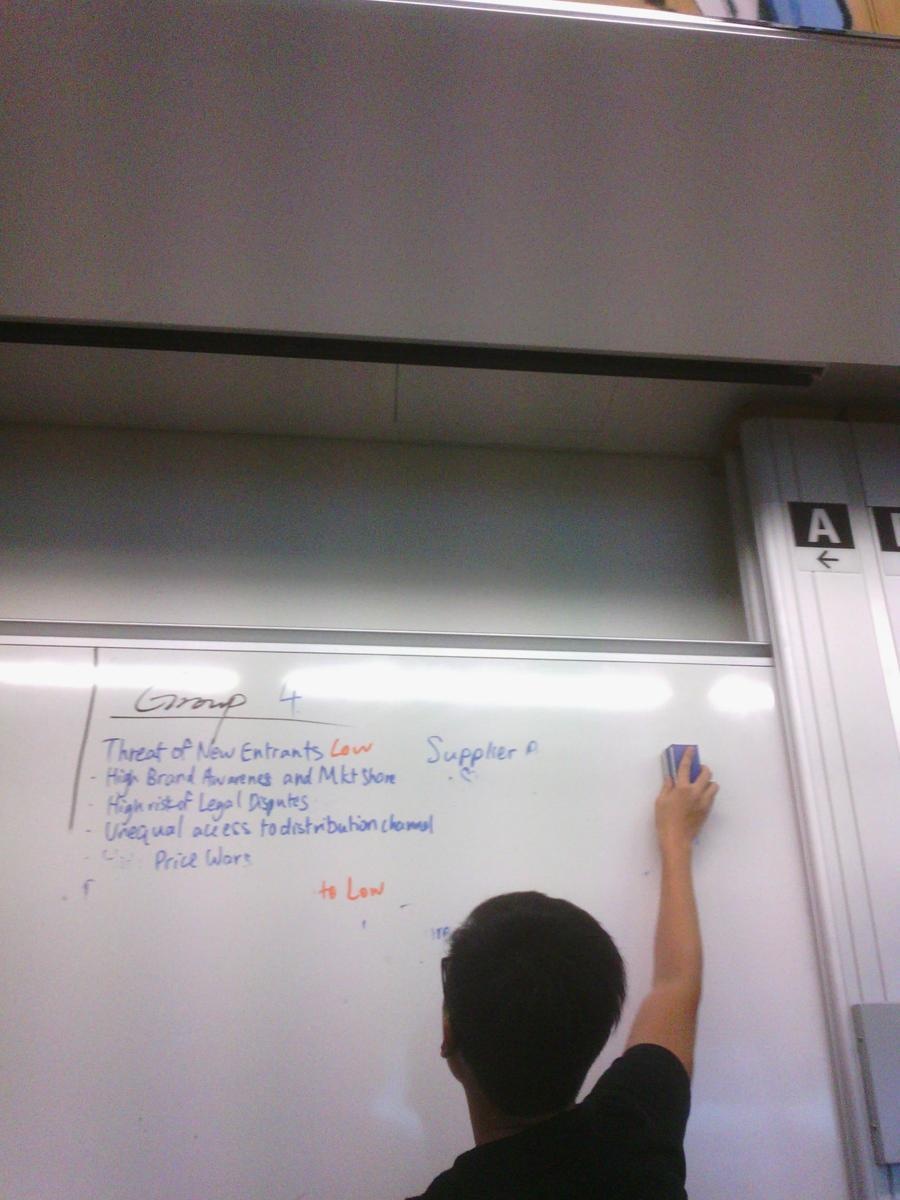 A
←
Group 4
Threat of New Entrants Low
- High Brand Awareness and Mkt Share
- High risk of Legal Disputes
- Unequal access to distribution channel
- Price Wars
to Low
Supplier P